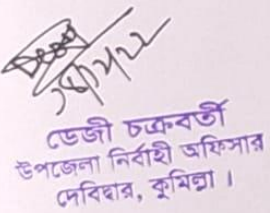 ডেজী চক্রবর্তী
উপজেলা নির্বাহী অফিসার
দেবিদ্বার, কুমিল্লা।